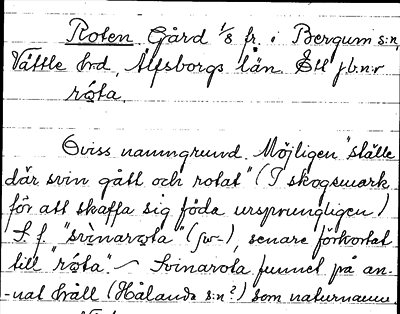 Roten Gård 1/8 fr. i Bergum s:n,
Vättle hrd, Älfsborgs län Ett j.b.n:r
rǫ́ta.
Oviss namngrund. Möjligen "ställe
där svin gått och rotat" (I skogsmark
för att skaffa sig föda ursprungligen)
S. f. "svìnarǫta" (fw-), senare förkortat
till "rǫ́ta". Svinarota funnet på an-
-nat håll (Hålanda s:n?) som naturnamn.